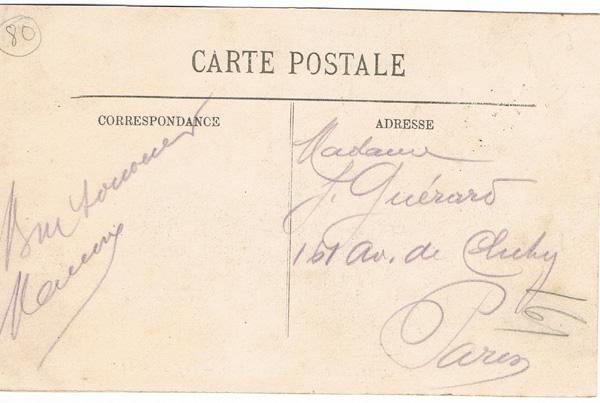 80
CARTE POSTALE
CORRESPONDANCE
ADRESSE
Bon souvenir
Maurice
Madame
J. Guérard
161 Av. de Clichy
Paris